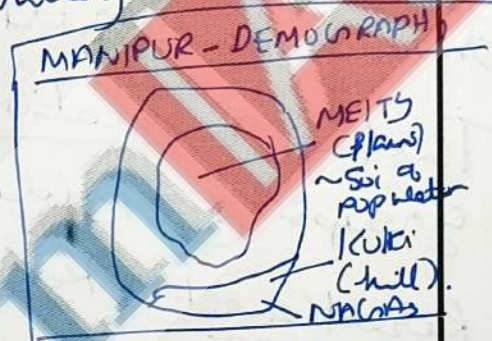 MANIPUR - DEMOGRAPHY
MEITS
(plains)
~ 50% of
population
KUKI
(hill).
NAGAS